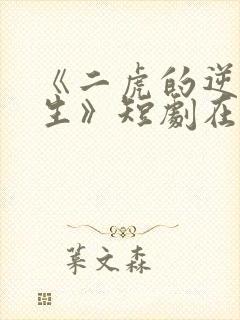 《二虎的逆
生》短劇在
葉文森